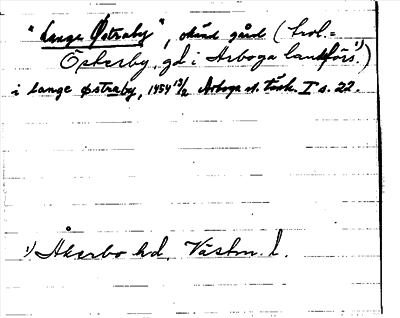 "Lange Østraby", okänd gård (trol. =
Österby, gd i Arboga landsförs. ¹⁾)
i Lange østraby, 1454 13/2 Arboga st. tänk. I s. 22.
¹⁾ Åkerbo hd, Västm. l.